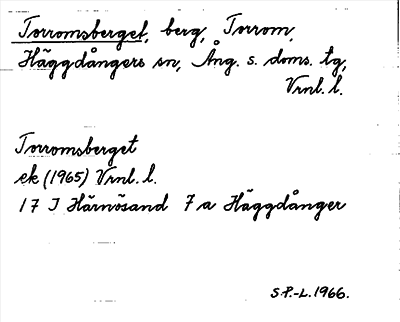 Torromsberget, berg, Torrom,
Häggdångers sn, Ång. s. doms. tg,
Vrnl. l.
Torromsberget
ek (1965) Vrnl. l.
17 I Härnösand 7 a Häggdånger
S.P.-L. 1966.